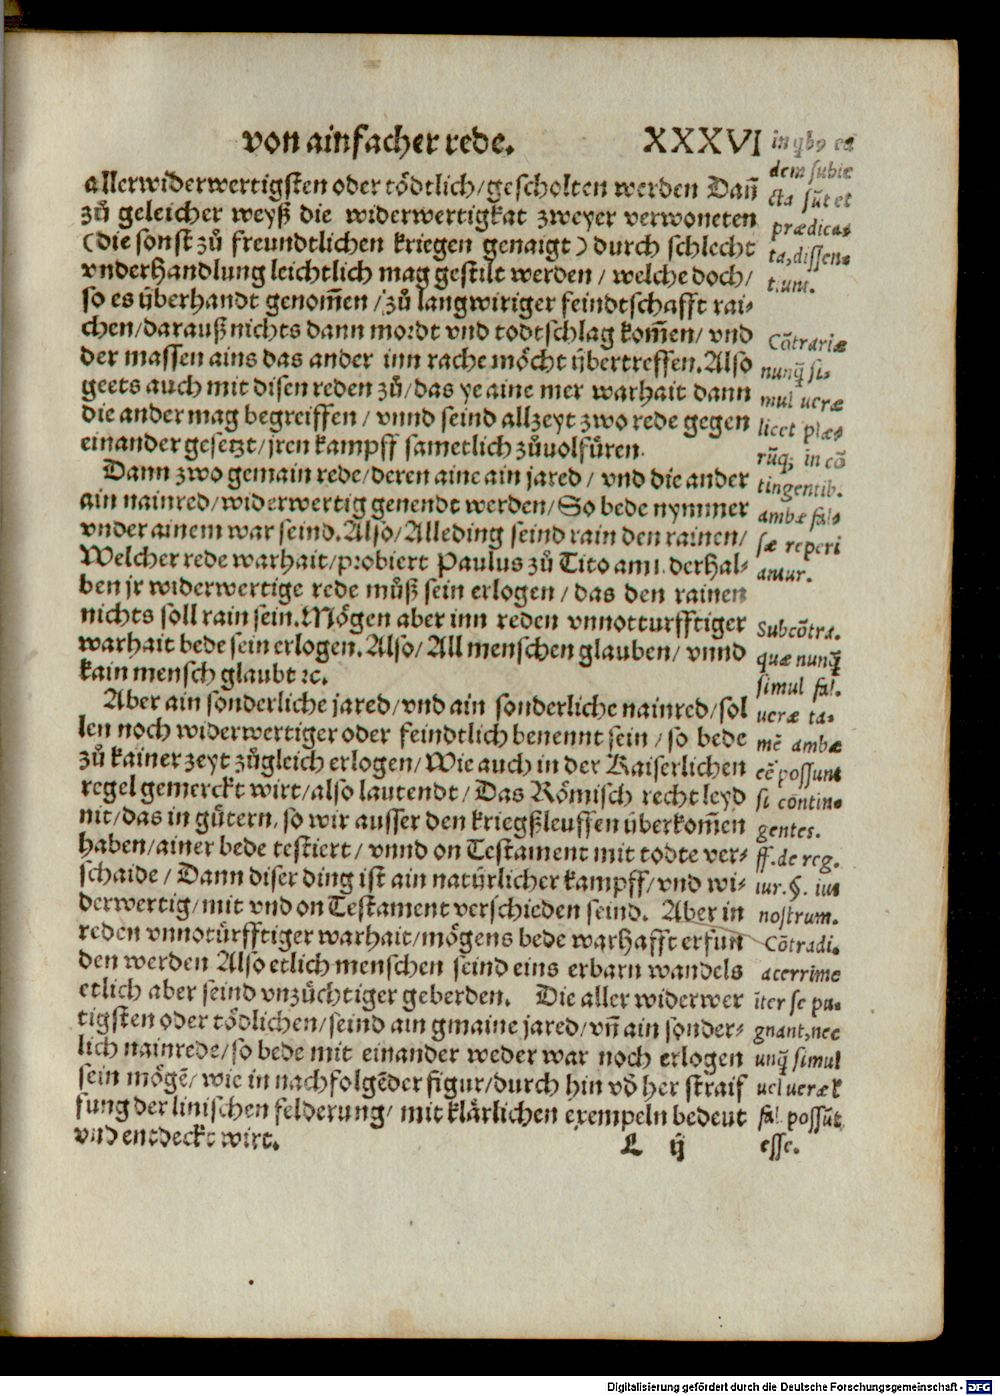 von ainfacher rede. XXXVI
allerwiderwertigsten oder tödtlich/gescholten werden Dañ
zů geleicher weyß die widerwertigkat zweyer verwoneten
(die sonst zů freundtlichen kriegen genaigt) durch schlecht
vnderhandlung leichtlich mag gestilt werden / welche doch/
so es überhandt genom̃en / zů langwiriger feindtschafft rai⸗
chen/darauß nichts dann mordt vnd todtschlag kom̃en/ vnd
der massen ains das ander inn rache möcht übertreffen. Also
geets auch mit disen reden zů/das ye aine mer warhait dann
die ander mag begreiffen / vnnd seind allzeyt zwo rede gegen
einander gesetzt/jren kampff sametlich zůuolfüren.
Dann zwo gemain rede/deren aine ain jared / vnd die ander
ain nainred/widerwertig genendt werden/So bede nymmer
vnder ainem war seind. Also/Alle ding seind rain den rainen/
Welcher rede warhait/probiert Paulus zů Tito am 1. derhal⸗
ben jr widerwertige rede můß sein erlogen / das den rainen
nichts soll rain sein. Mögen aber inn reden vnnotturfftiger
warhait bede sein erlogen. Also/ All menschen glauben/ vnnd
kain mensch glaubt ꝛc.
Aber ain sonderliche jared/vnd ain sonderliche nainred/sol
len noch widerwertiger oder feindtlich benennt sein / so bede
zů kainer zeyt zůgleich erlogen/Wie auch in der Kaiserlichen
regel gemerckt wirt/also lautendt/ Das Römisch recht leyd
nit/das in gütern, so wir ausser den kriegßleuffen überkom̃en
haben/ainer bede testiert/ vnnd on Testament mit todte ver⸗
schaide / Dann diser ding ist ain natürlicher kampff/vnd wi⸗
derwertig/mit vnd on Testament verschieden seind. Aber in
reden vnnotürfftiger warhait/mögens bede warhafft erfun
den werden Also etlich menschen seind eins erbarn wandels
etlich aber seind vnzüchtiger geberden. Die aller widerwer
tigsten oder tödlichen/seind ain gmaine jared/vñ ain sonder⸗
lich nainrede/so bede mit einander weder war noch erlogen
sein mögẽ/ wie in nachfolgẽder figur/durch hin vñ her straif
fung der linischen felderung/ mit klärlichen exempeln bedeut
vnd entdeckt wirt.
L ij
in qbꝰ ea
dem subie
cta sũt et
prædica⸗
ta,dissen⸗
tiunt.
Cõtrariæ
nunq̃ si⸗
mul ueræ
licet plæ⸗
rũq; in cõ
tingentib.
ambæ fal⸗
sæ reperi
antur.
Subcõtra.
quæ nunq̃
simul fal.
ueræ ta⸗
mẽ ambæ
eẽ possunt
si contin⸗
gentes.
ff. de reg.
iur. §. ius
nostrum.
Cõtradi.
acerrime
iter se pu⸗
gnant,nec
unq̃ simul
uel ueræ l
fal. possũt
esse.
Digitalisierung gefördert durch die Deutsche Forschungsgemeinschaft - DFG